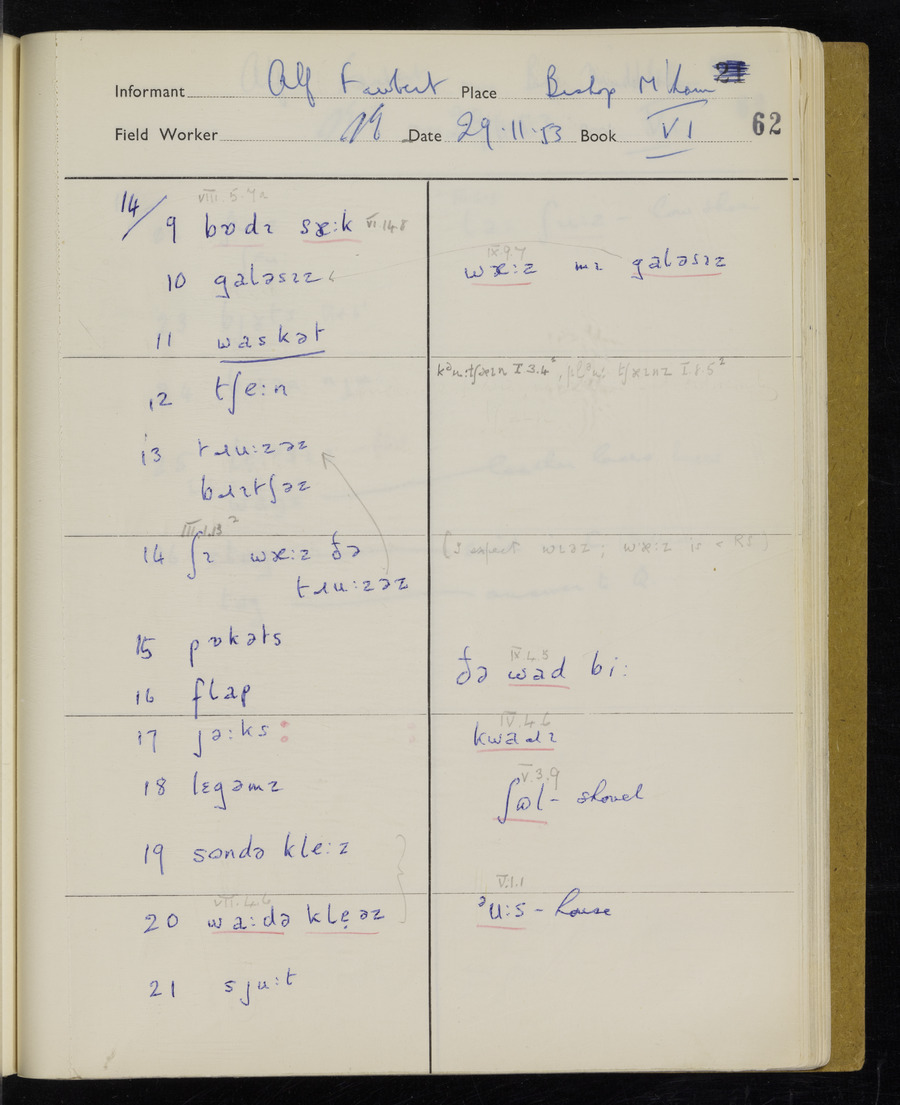 Informant Alf Place Bishop M'ham
Field Worker Date 29.11.53 Book VI 62
14/ VIII.5.
9 bɒdɪ sæ:k VI.14.8
10 galəsɪz
IX.9.7
wæ:z mɪ galəsɪz
11 waskət
12 tʃe:n
I.3.4, I.8.5²
13 tɹu:zəz
bɹɪtʃəz
III.1.13²
14 ʃɪ wæ:z ðə
tɹu:zəz
(I expect wɪəz; wæ:z is < RS)
15 pɒkəts
16 flap
IX.4.5
ðə wad bi:
17 jə:ks:
IV.4.6
kwaɹɪ
18 lɛgəmz
V.3.9
ʃɷl - shovel
19 sɷndə kle:z
VII.4.6
20 wa:də klẹəz
V.1.1
ᵊu:s - house
21 sju:t